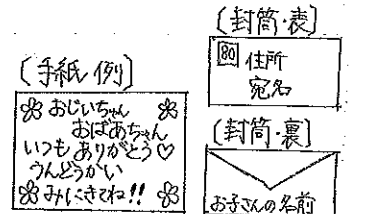 〔手紙 例〕
おじいちゃん
おばあちゃん
いつも ありがとう♡
うんどうかい
みにきてね!!
〔封筒・表〕
80 住所
宛名
〔封筒・裏〕
お子さんの名前